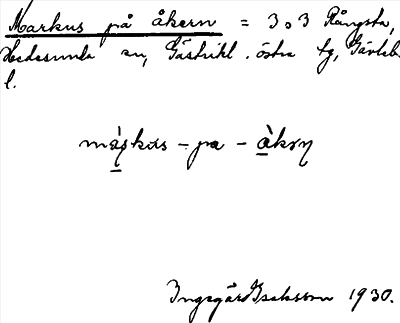 Markus på åkern = 3 o 3 Rångsta,
Hedesunda sn, Gästrikl. östra tg, Gävleb.
l.
màṣkɷs - pa - àkəṇ
Ingegärd Isaksson 1930.